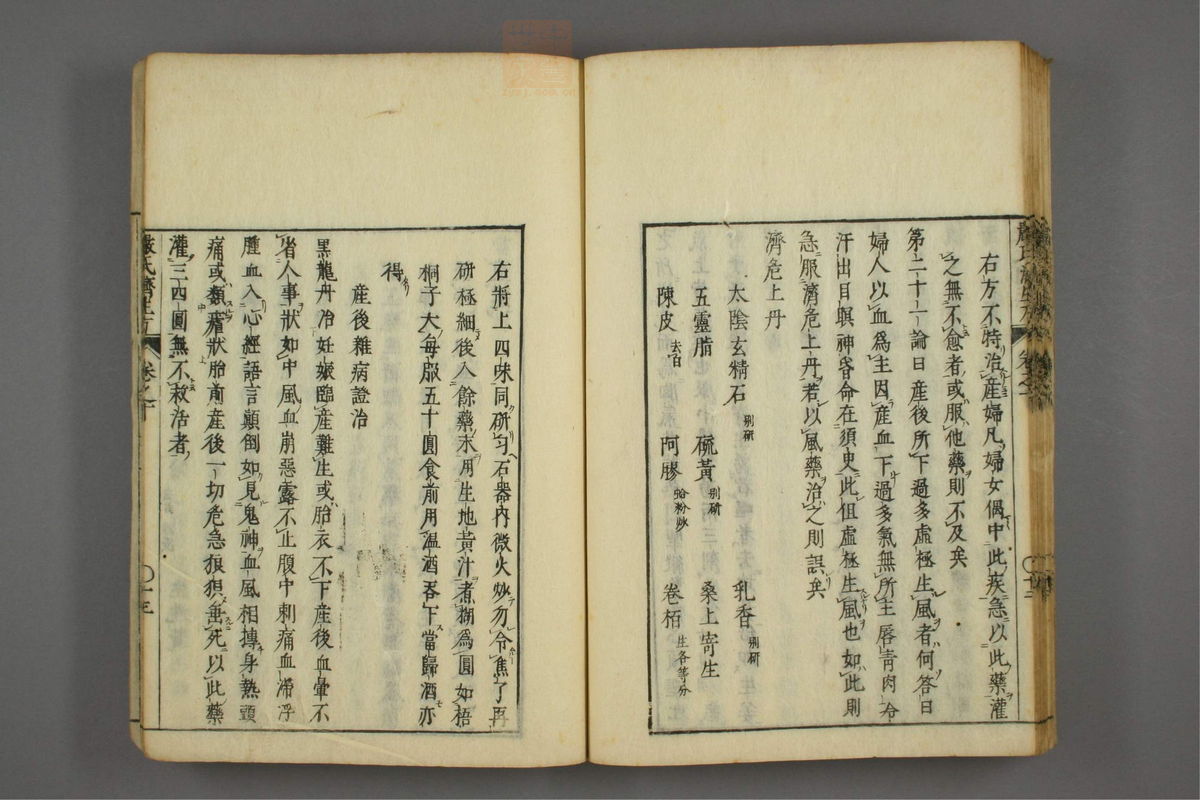 右方不特治産婦凡婦女偶中此疾急以此藥灌
之無不愈者或服他藥則不及矣
第二十一論曰産後所下過多虛極生風者何答曰
婦人以血爲主因産血下過多氣無所主唇青肉冷
汗出目瞑神昏命在須臾此但虛極生風也如此則
急服濟危上丹若以風藥治之則誤矣
濟危上丹
太陰玄精石 別研 乳香 別研
五靈脂 硫黄 別研 桑上寄生
陳皮 去白 阿膠 蛤粉炒 卷栢 生各等分
右將上四味同研匀石器内微火炒勿令焦了再
研極細後入餘藥末用生地黄汁煮糊爲圓如梧
桐子大每服五十圓食前用温酒吞下當歸酒亦
得
産後雜病證治
黒龍丹治妊娠臨産難生或胎衣不下産後血暈不
省人事狀如中風血崩惡露不止腹中刺痛血滯浮
腫血入心經語言顛倒如見鬼神血風相搏身熱頭
痛或類瘧狀胎前産後一切危急狼狽垂死以此藥
灌三四圓無不救活者
嚴氏濟生方 卷之